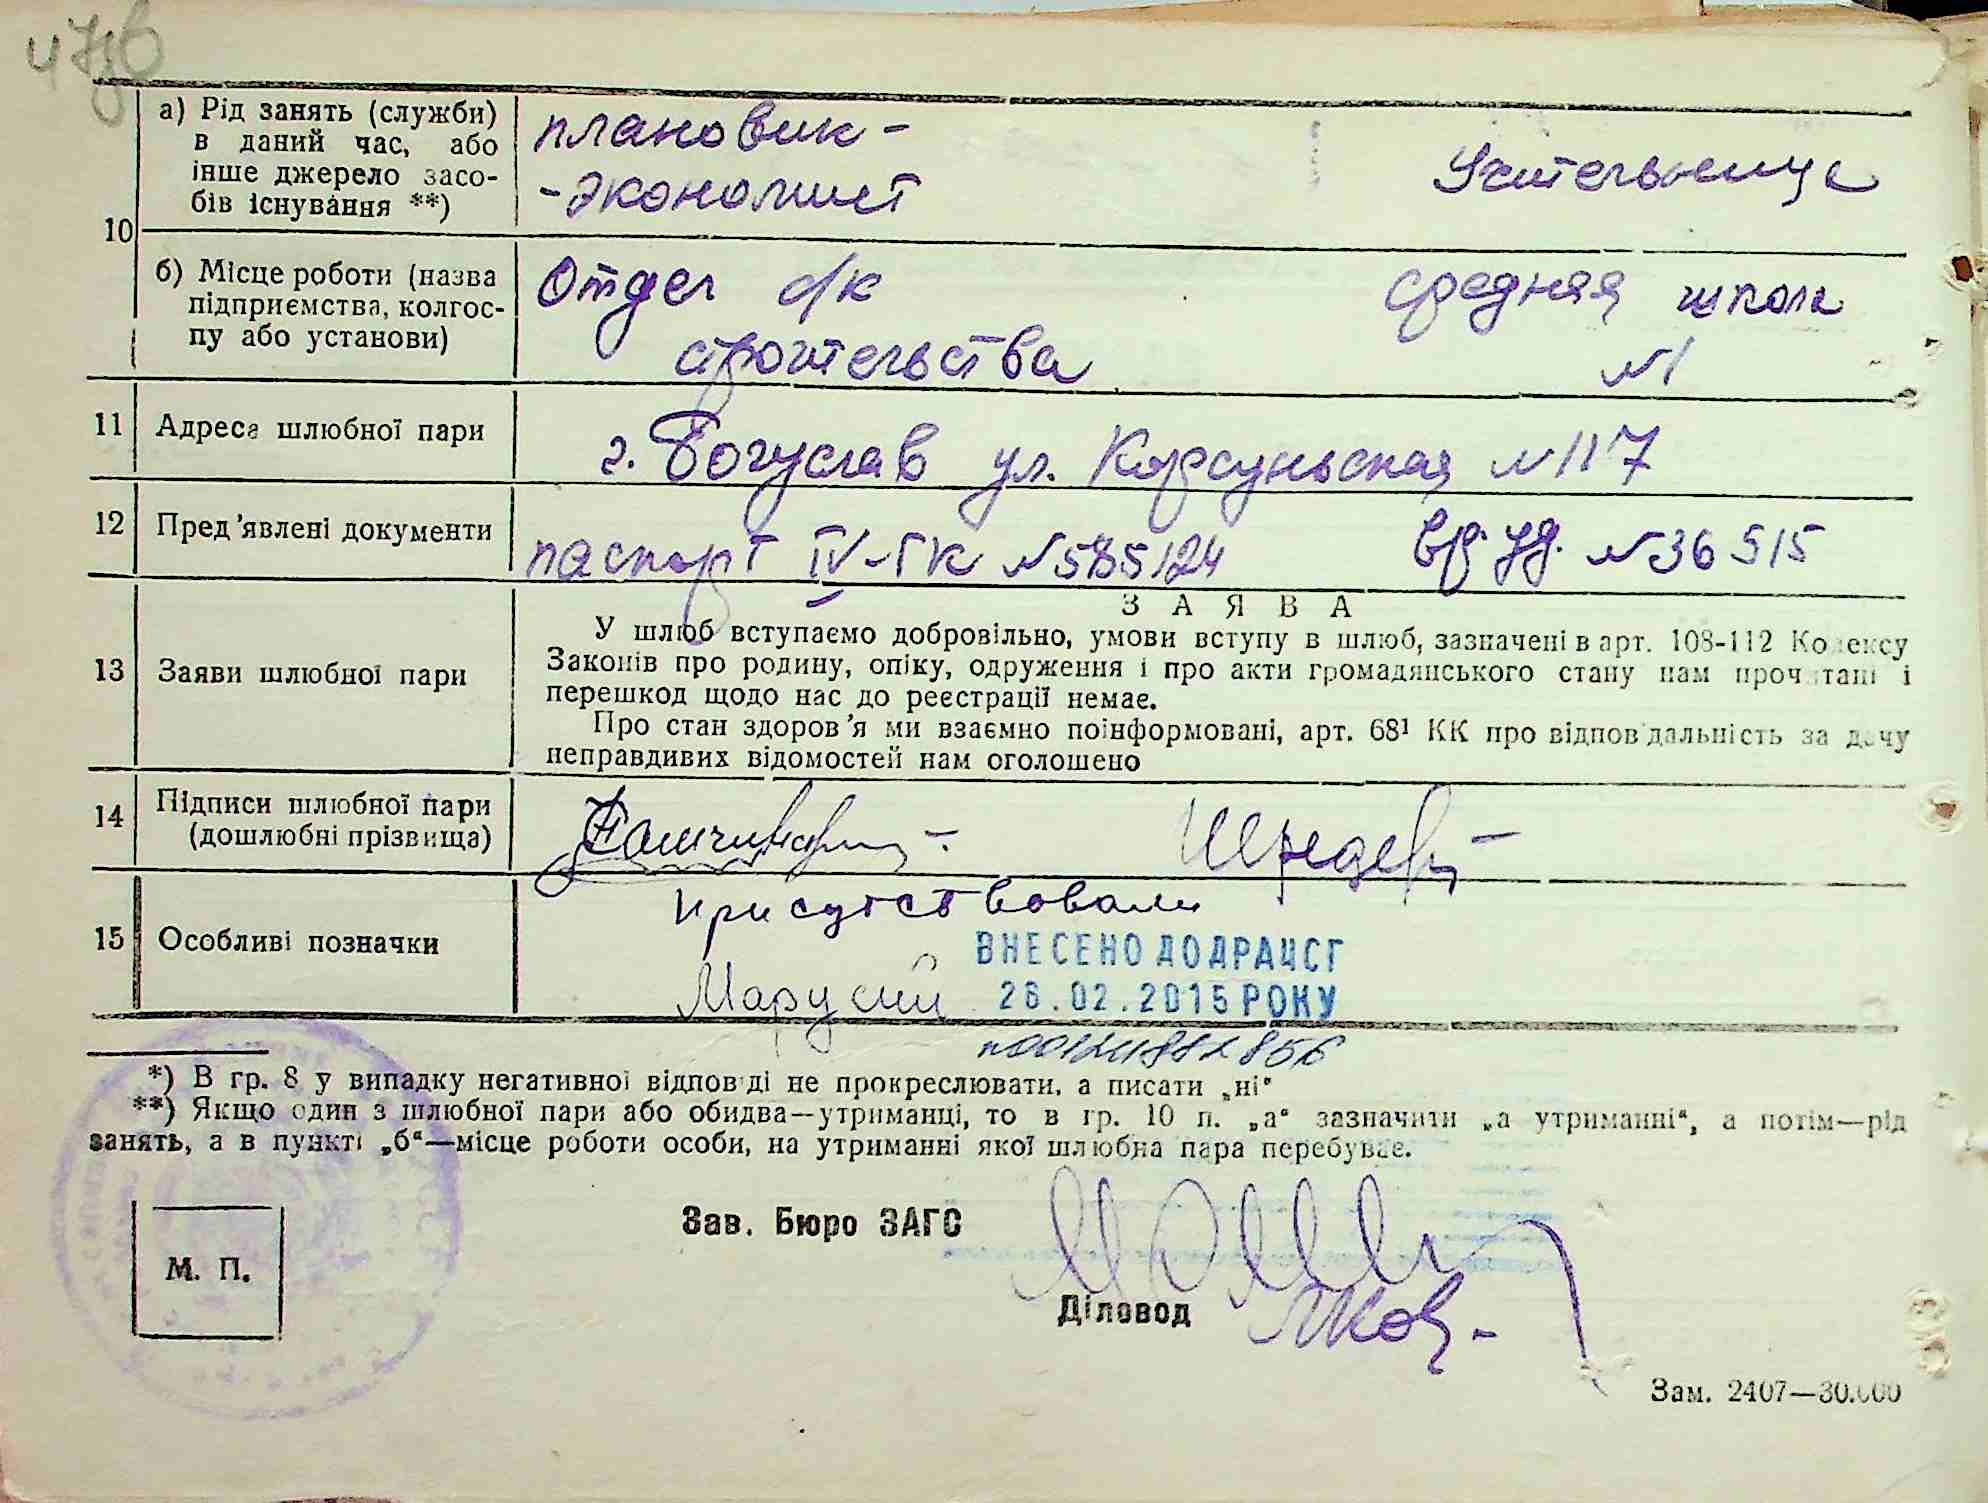 а) Рід занять (служби)
в даний час, або
інше джерело засо-
бів існування **)
плановик -
- экономист
Учительница
10
б) Місце роботи (назва
підприємства, колгос-
пу або установи)
Отдел с/к
строительства
средняя школа
№1
11 Адреса шлюбної пари
г. Богуслав ул. Корсуньская №117
12 Пред'явлені документи
паспорт IV-ГК №585124
вр. уд. №36515
13 Заяви шлюбної пари
ЗАЯВА
У шлюб вступаємо добровільно, умови вступу в шлюб, зазначені в арт. 108-112 Кодексу
Законів про родину, опіку, одруження і про акти громадянського стану нам прочитані і
перешкод щодо нас до реєстрації немає.
Про стан здоров'я ми взаємно поінформовані, арт. 68¹ КК про відповідальність за дачу
неправдивих відомостей нам оголошено
14 Підписи шлюбної пари
(дошлюбні прізвища)
15 Особливі позначки
присутствовали
ВНЕСЕНО ДО ДРАЦСГ
26.02.2015 РОКУ
*) В гр. 8 у випадку негативної відповіді не прокреслювати, а писати „ні“
**) Якщо один з шлюбної пари або обидва—утриманці, то в гр. 10 п. „а“ зазначити „а утриманні“, а потім—рід
занять, а в пункті „б“—місце роботи особи, на утриманні якої шлюбна пара перебуває.
М. П.
Зав. Бюро ЗАГС
Діловод
Зам. 2407—30.000